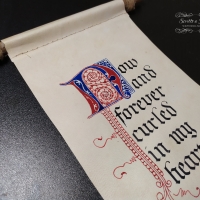 Now
and
forever
curled
in my
hear